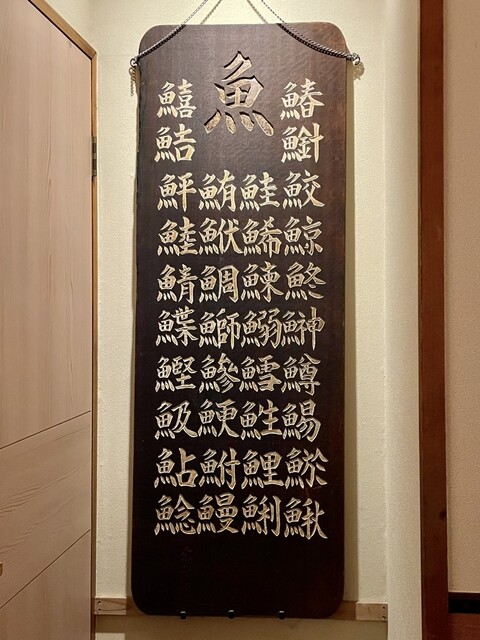 魚
鰆鮫鯨鮗鰰鱒鯣鯲鰍
鮭鯑鰊鰯鱈鮏鯉鯏
鮪鮲鯛鰤鰺鯁鮒鰻
鱚鮚鮃鯥鯖鰈鰹魥鮎鯰